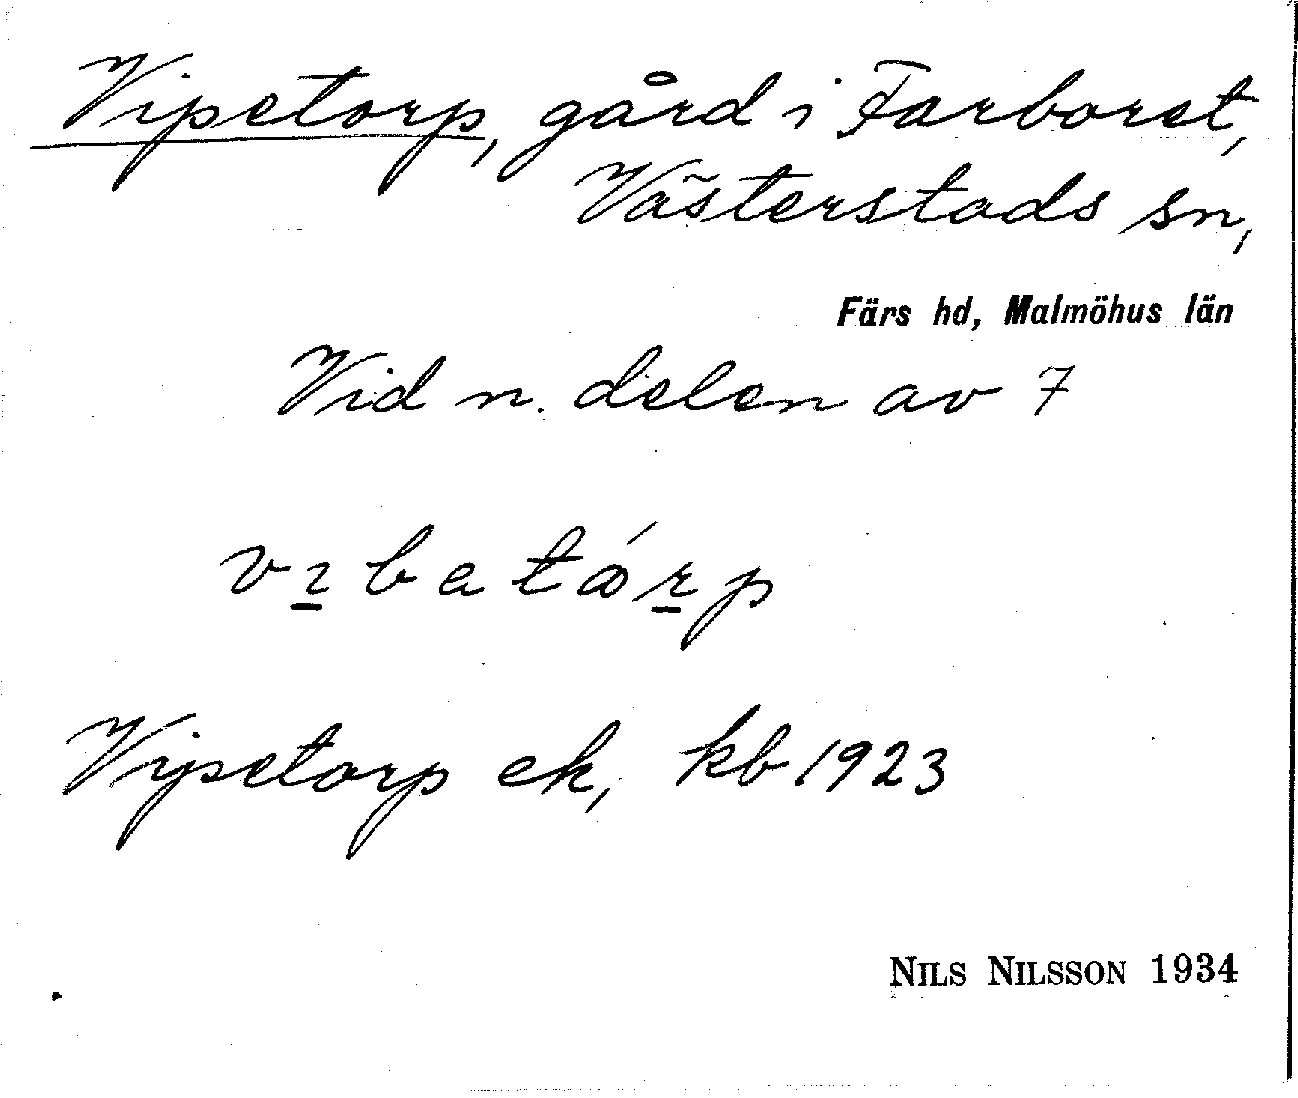 Vipetorp, gård i Farboret,
Västerstads sn,
Färs hd, Malmöhus län
Vid n. delen av 7
vıbatǻrp
Vipetorp ek, kb 1923
NILS NILSSON 1934